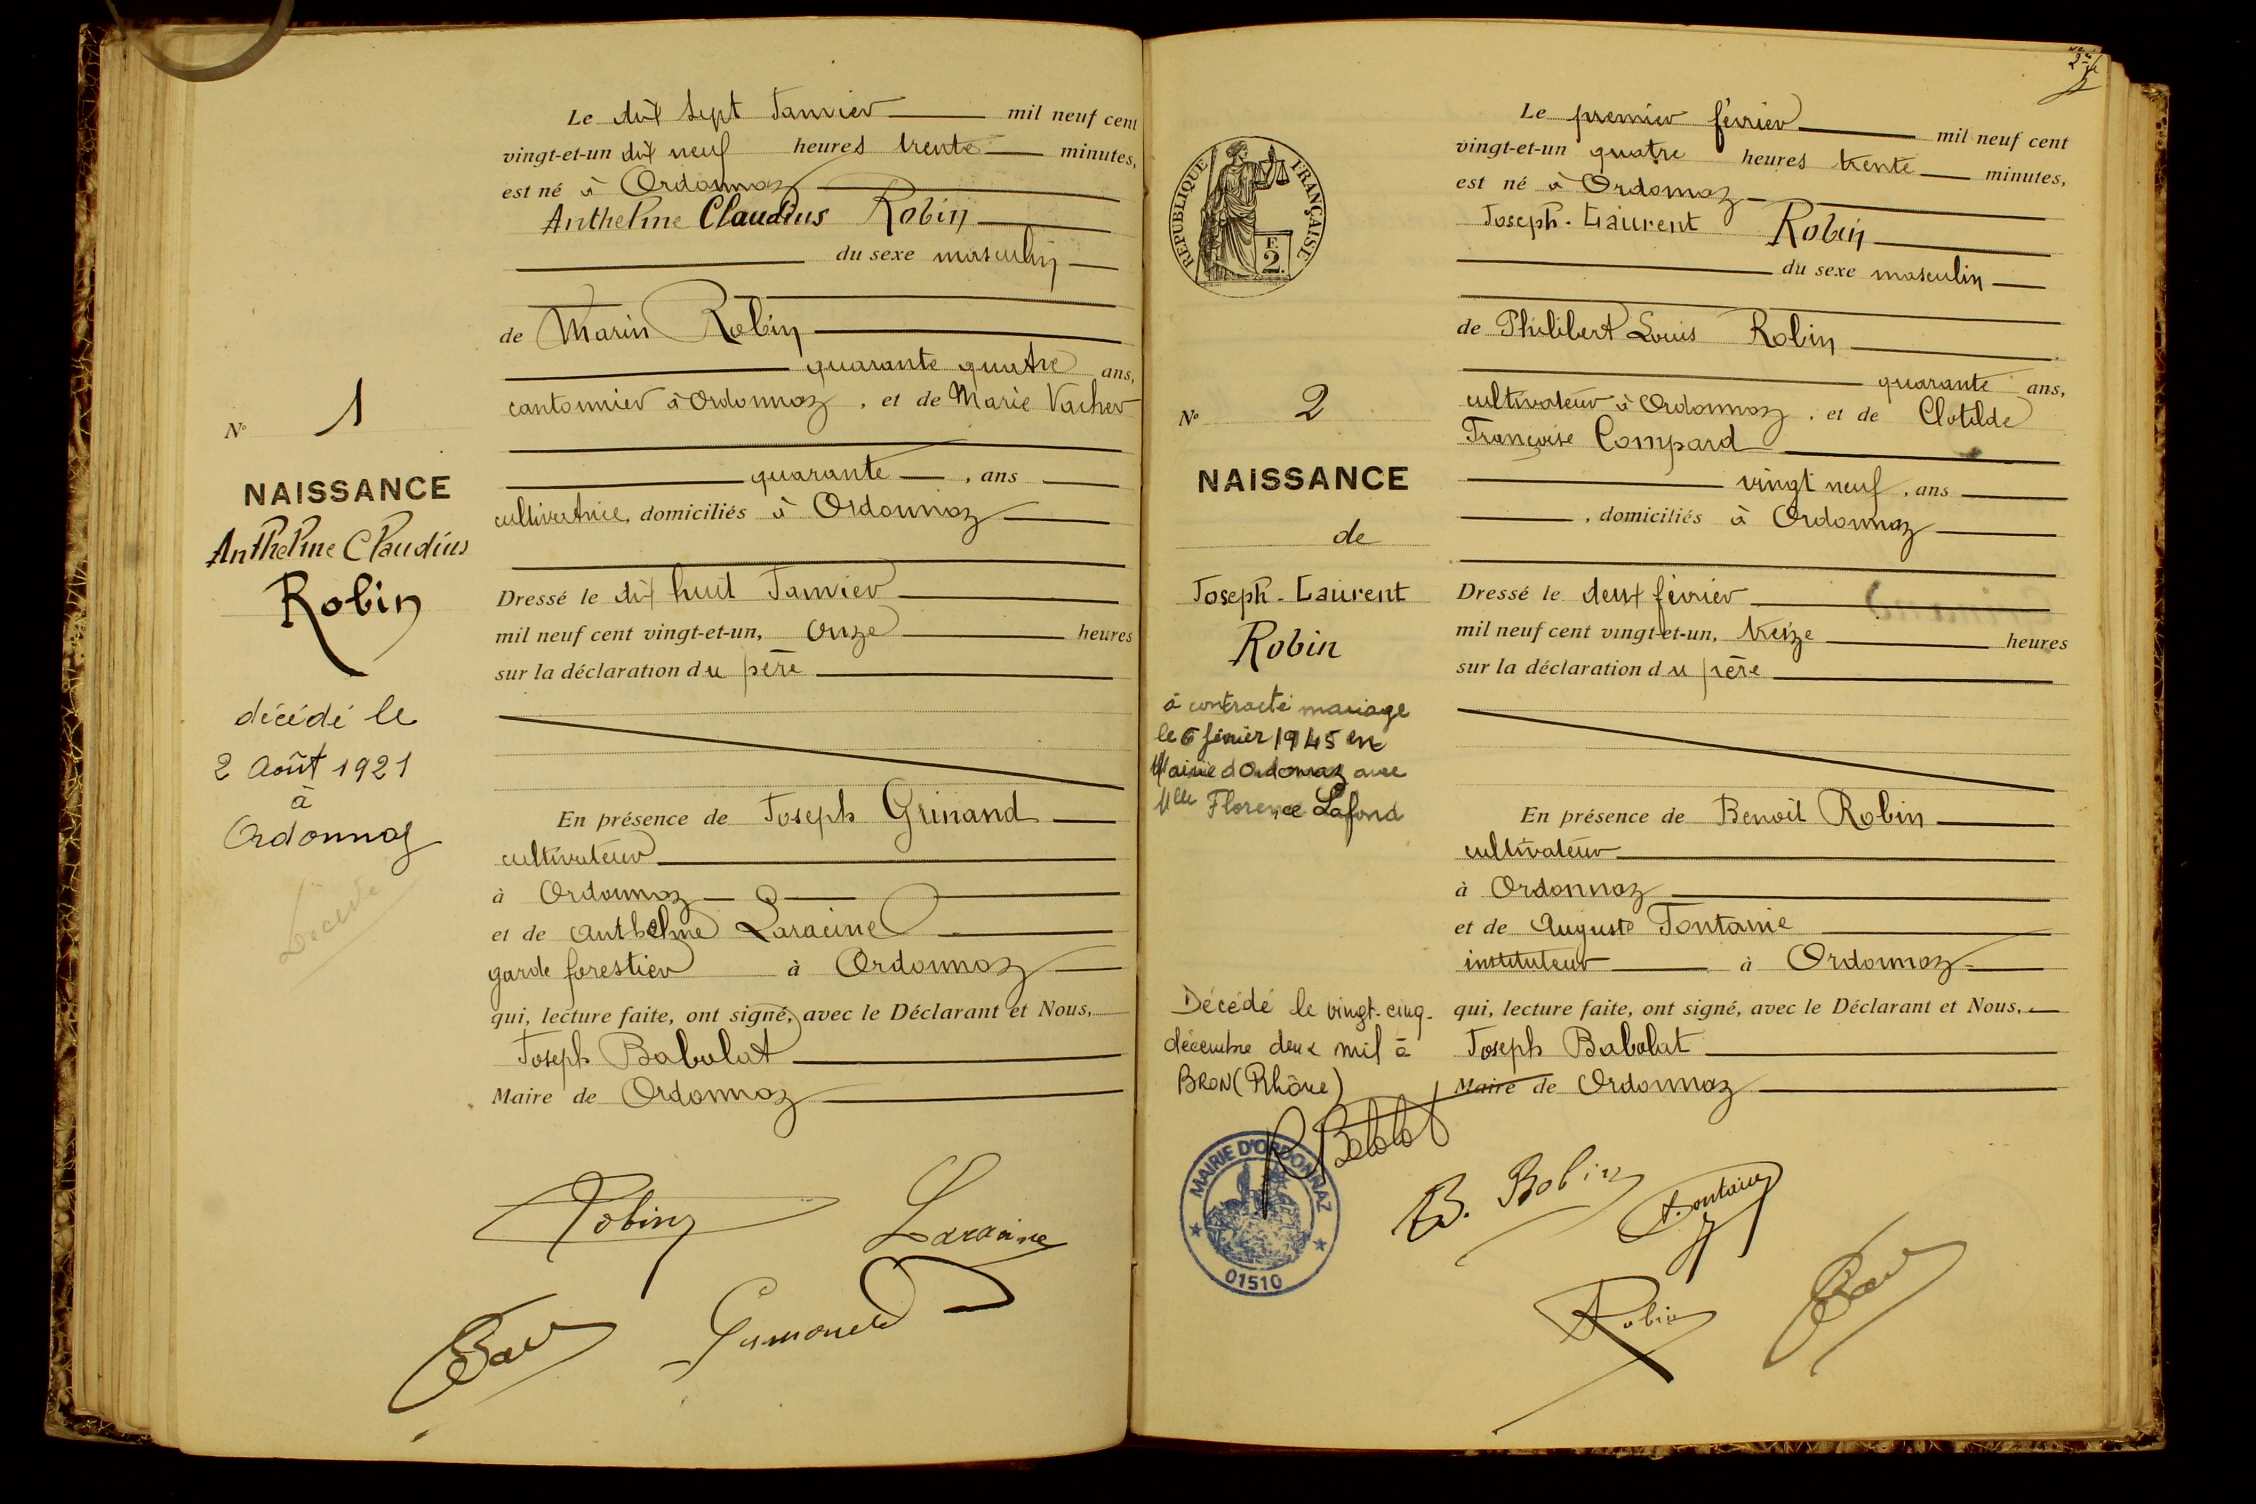 Le dix sept Janvier mil neuf cent
vingt-et-un dix neuf heures trente minutes,
est né à Ordonnaz
Anthelme Claudius Robin
du sexe masculin
de Marin Robin
quarante quatre ans,
cantonnier à Ordonnaz, et de Marie Vacher
quarante, ans
cultivatrice, domiciliés à Ordonnaz
Dressé le dix huit Janvier
mil neuf cent vingt-et-un, onze heures
sur la déclaration du père
En présence de Joseph Grinand
cultivateur
à Ordonnaz
et de Anthelme Laracine
garde forestier à Ordonnaz
qui, lecture faite, ont signé, avec le Déclarant et Nous,
Joseph Babolat
Maire de Ordonnaz
N° 1
NAISSANCE
Anthelme Claudius
Robin
décédé le
2 Août 1921
à
Ordonnaz
Décédé
Robin
Laracine
Le premier février mil neuf cent
vingt-et-un quatre heures trente minutes,
est né à Ordonnaz
Joseph-Laurent Robin
du sexe masculin
de Philibert Louis Robin
quarante ans,
cultivateur à Ordonnaz, et de Clotilde
Françoise Compard
vingt neuf, ans
, domiciliés à Ordonnaz
Dressé le deux février
mil neuf cent vingt-et-un, treize heures
sur la déclaration du père
En présence de Benoît Robin
cultivateur
à Ordonnaz
et de Auguste Fontaine
instituteur à Ordonnaz
qui, lecture faite, ont signé, avec le Déclarant et Nous,
Joseph Babolat
Maire de Ordonnaz
RÉPUBLIQUE FRANÇAISE
F.
2.
N° 2
NAISSANCE
de
Joseph-Laurent
Robin
à contracté mariage
le 6 février 1945 en
Mairie d'Ordonnaz avec
Mlle Florence Lafond
Décédé le vingt-cinq
décembre deux mil à
BRON (Rhône)
R Babolat
MAIRIE D'ORDONNAZ
01510
B. Robin
A. Fontaine
Robin